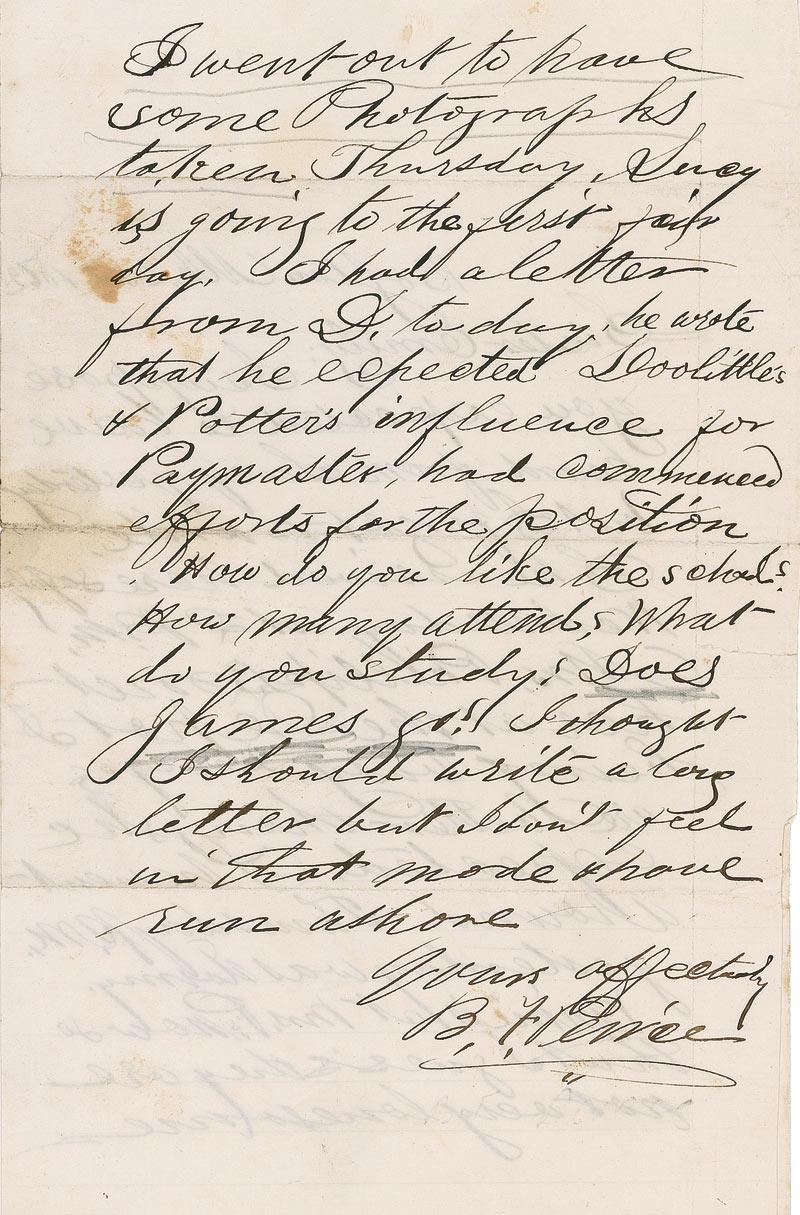 I went out to have
some Photographs
taken Thursday, Lucy
is going to the first fair
day. I had a letter
from D. to day, he wrote
that he expected Doolittle's
& Potter's influence for
Paymaster, had commenced
efforts for the position
How do you like the school?
How many attend? What
do you study? Does
James go? I thought
I should write a long
letter but I don't feel
in that mode & have
run ashore
Yours affectively
B. F. Peirce